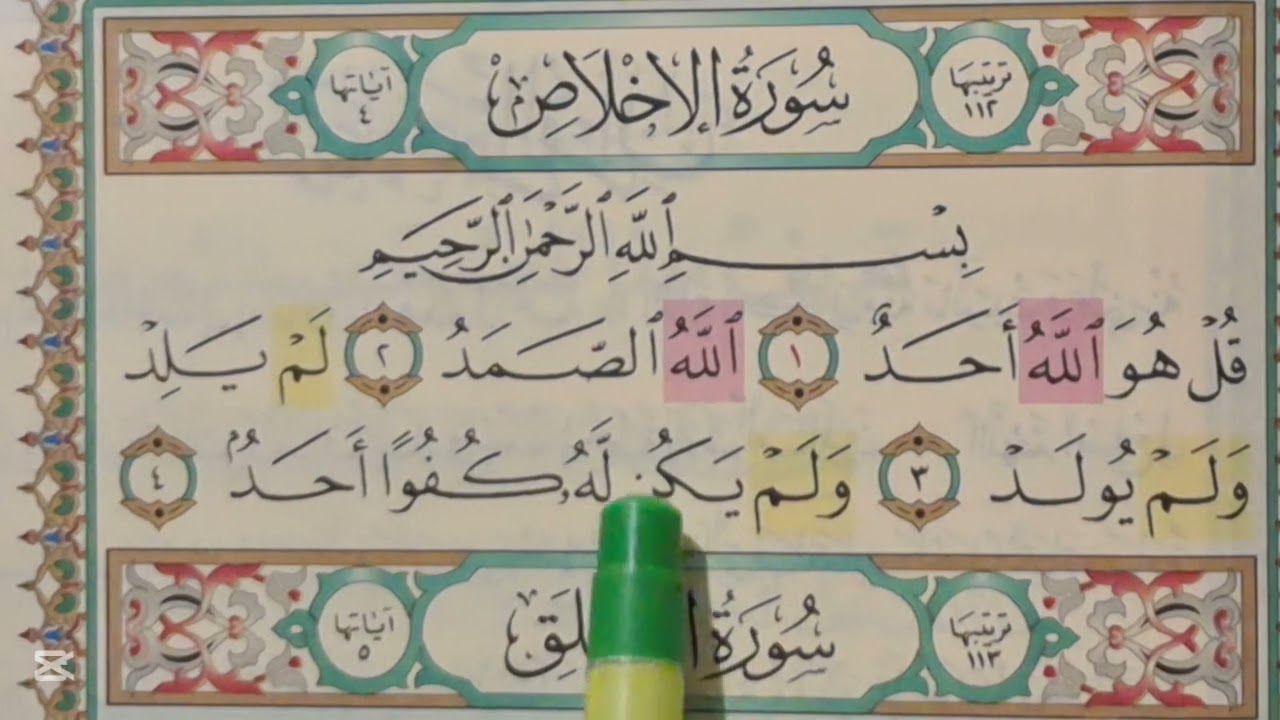 ترتيبها ١١٢ سُورَةُ الإِخْلَاصِ آياتها ٤
بِسْمِ ٱللَّهِ ٱلرَّحْمَٰنِ ٱلرَّحِيمِ
قُلْ هُوَ ٱللَّهُ أَحَدٌ ١ ٱللَّهُ ٱلصَّمَدُ ٢ لَمْ يَلِدْ
وَلَمْ يُولَدْ ٣ وَلَمْ يَكُن لَّهُۥ كُفُوًا أَحَدٌۢ ٤
ترتيبها ١١٣ سُورَةُ آياتها ٥